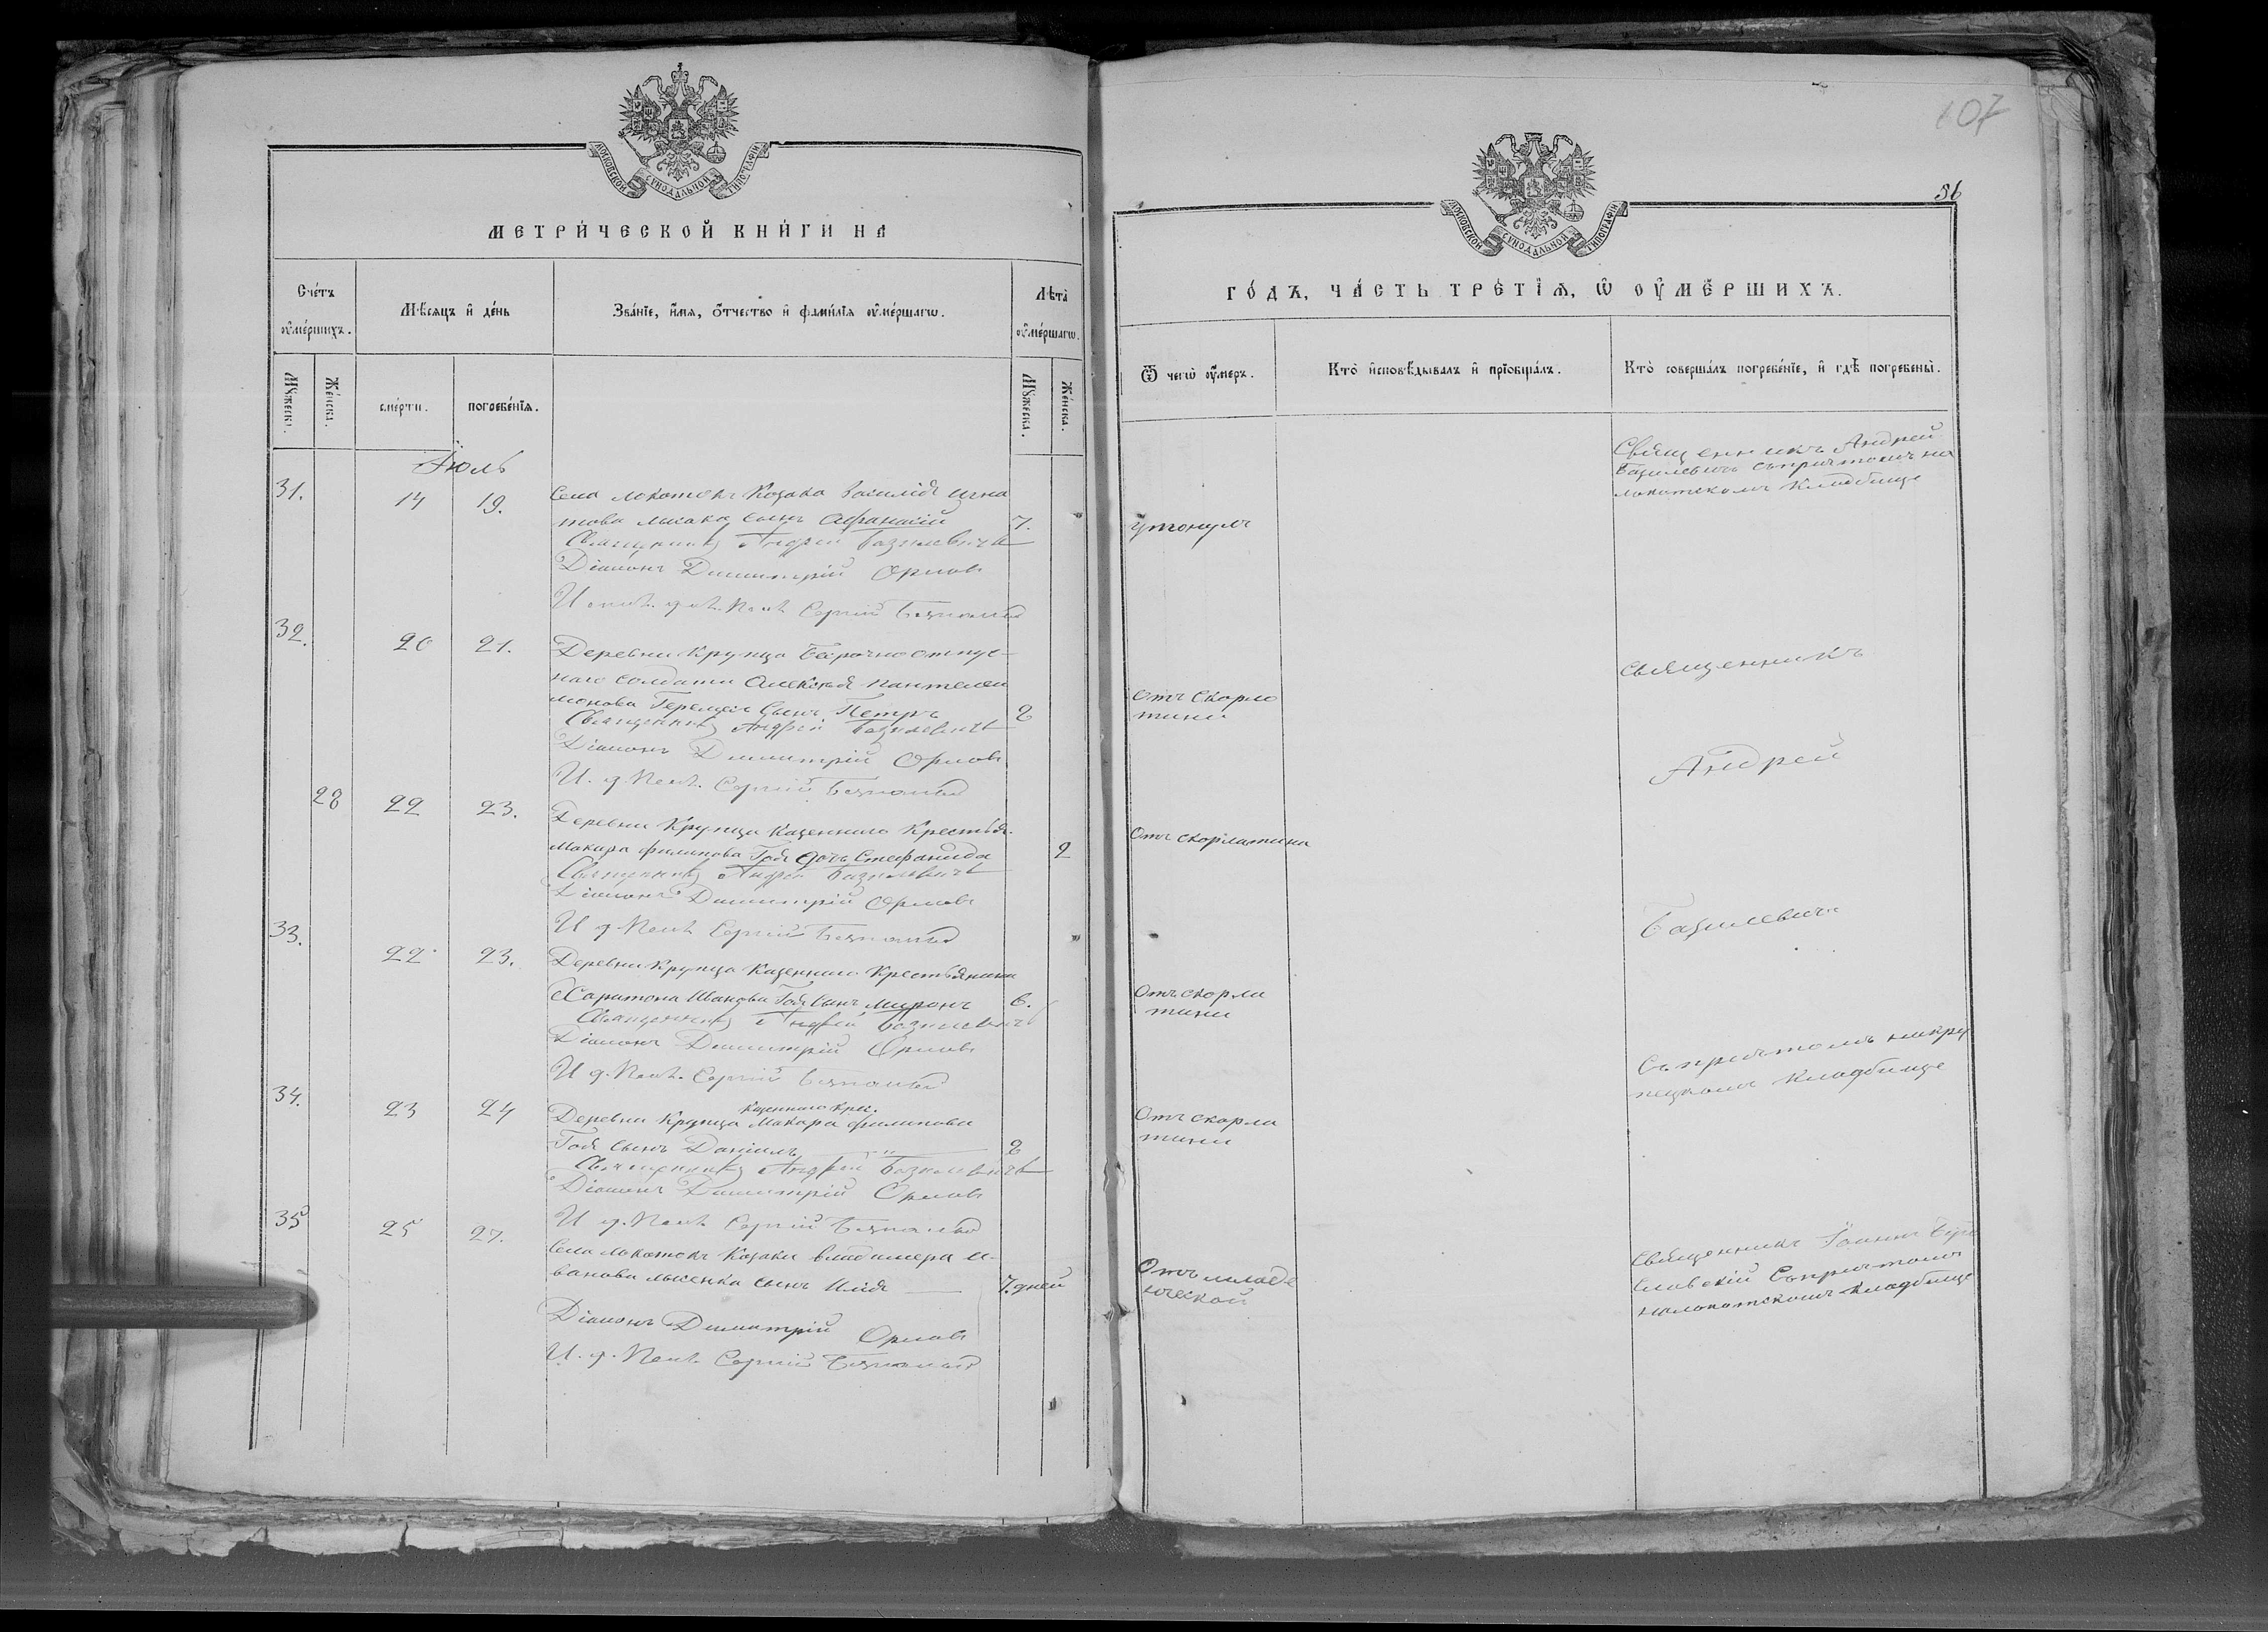 МОСКОВСКОЙ СУНОДАЛЬНОЙ ТИПОГРАФІИ
МЕТРИ́ЧЕСКОЙ КНИ́ГИ НА
Сче́тъ оу҆ме́ршихъ.
Мѣ́сяцъ и҆ де́нь
Зва́нїе, и҆́мя, ѻ҆́тчество и҆ фами́лїя оу҆ме́ршагѡ.
Лѣ́та оу҆ме́ршагѡ.
Мꙋ́жеска.
Же́нска.
сме́рти.
погребе́нїя.
Мꙋ́жеска.
Же́нска.
Іюль
31.
14
19.
Села Локотокъ Козака Василія Игна
това Лысака сынъ Афанасій
7.
Священникъ Андрей Базилевичъ
Діаконъ Димитрій Орловъ
Сергій
32.
20
21.
Деревни Крупца Безрочноотпус-
наго солдата Алексѣя Пантелеи
монова сынъ Петръ
2
Священникъ Андрей Базилевичъ
Діаконъ Димитрій Орловъ
И. д. Сергій
28
22
23.
Деревни Крупца Казеннаго Крестья.
Макара Филипова Гой дочь Стефанида
2
Священникъ Андрей Базилевичъ
Діаконъ Димитрій Орловъ
И д. Сергій
33.
22
23.
Деревни Крупца Казеннаго Крестьянина
Харитона Иванова Гоя сынъ Миронъ
6.
Священникъ Андрей Базилевичъ
Діаконъ Димитрій Орловъ
И д. Сергій
34.
23
24
казеннаго крес.
Деревни Крупца Макара Филипова
Гоя сынъ Даніилъ
2
Священникъ Андрей Базилевичъ
Діаконъ Димитрій Орловъ
И д. Сергій
35
25
27.
Села Локотокъ Козака Владимера И-
ванова Лысенка сынъ Илія
7. дней
Діаконъ Димитрій Орловъ
И. д. Сергій
107
56
МОСКОВСКОЙ СУНОДАЛЬНОЙ ТИПОГРАФІИ
ГО́ДЪ, ЧА́СТЬ ТРЕ́ТЇѦ, Ѡ҆ ОУ҆МЕ́РШИХЪ.
Ѿ чегѡ̀ оу҆́меръ.
Кто̀ и҆сповѣ́дывалъ и҆ прїобща́лъ.
Кто̀ соверша́лъ погребе́нїе, и҆ гдѣ̀ погребены̀.
Священникъ Андрей
Базилевичъ съпричтомъ на
локотскомъ кладбище
утонулъ
Отъ скорла
тини
Священникъ
Андрей
Отъ скорлатина
Базилевичъ
Отъ скорла
тини
съ причтомъ накру
пецкомъ кладбище
Отъ скорла
тини
Отъ младе
нческой
Священникъ Іоаннъ
съпричтомъ
налокотскомъ кладбище